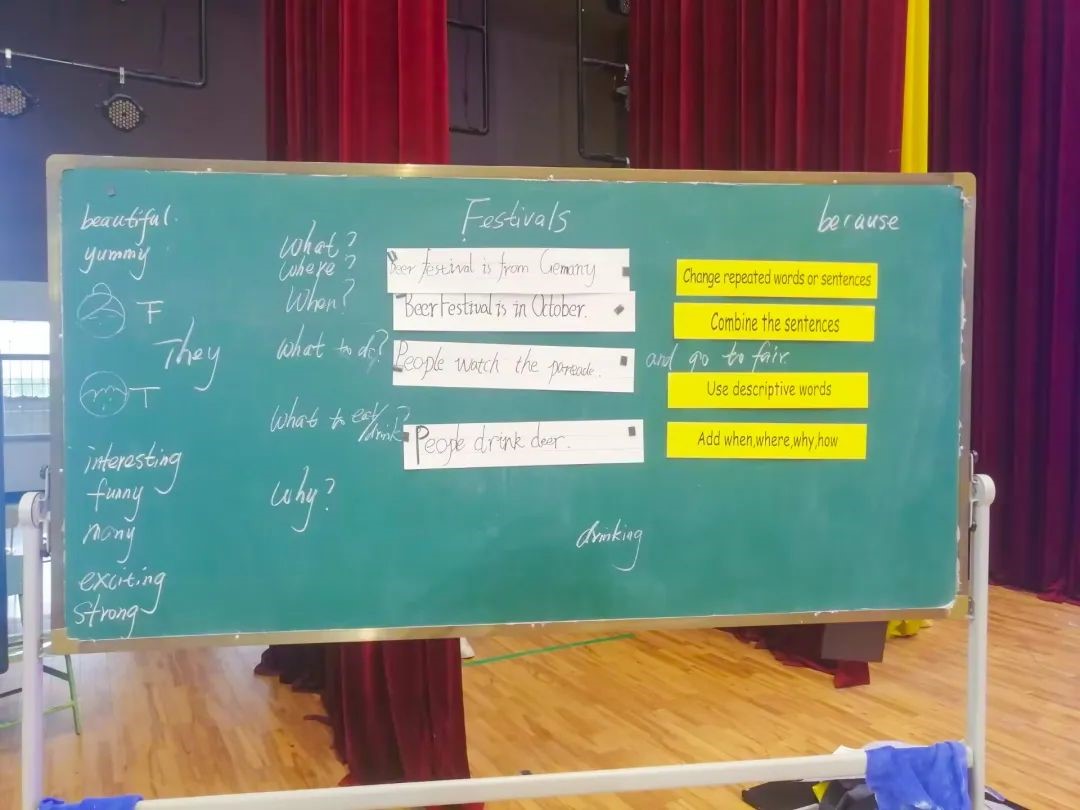 Festivals
because
beautiful.
yummy
F
They
T
interesting
funny
many
exciting
strong
What?
Where?
When?
What to do?
What to eat/drink?
Why?
Beer festival is from Gemany
Beer Festival is in October.
People watch the pareade.
and go to fair.
People drink deer.
drinking
Change repeated words or sentences
Combine the sentences
Use descriptive words
Add when,where,why,how